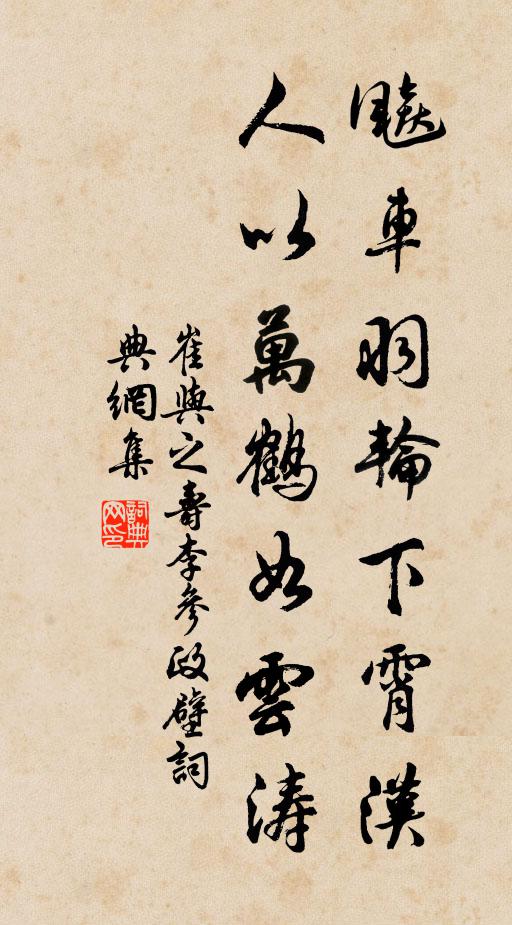 飈車羽輪下霄漢
人以萬鶴如雲濤
崔與之壽李參政壁詞
典網集
詞典
网印